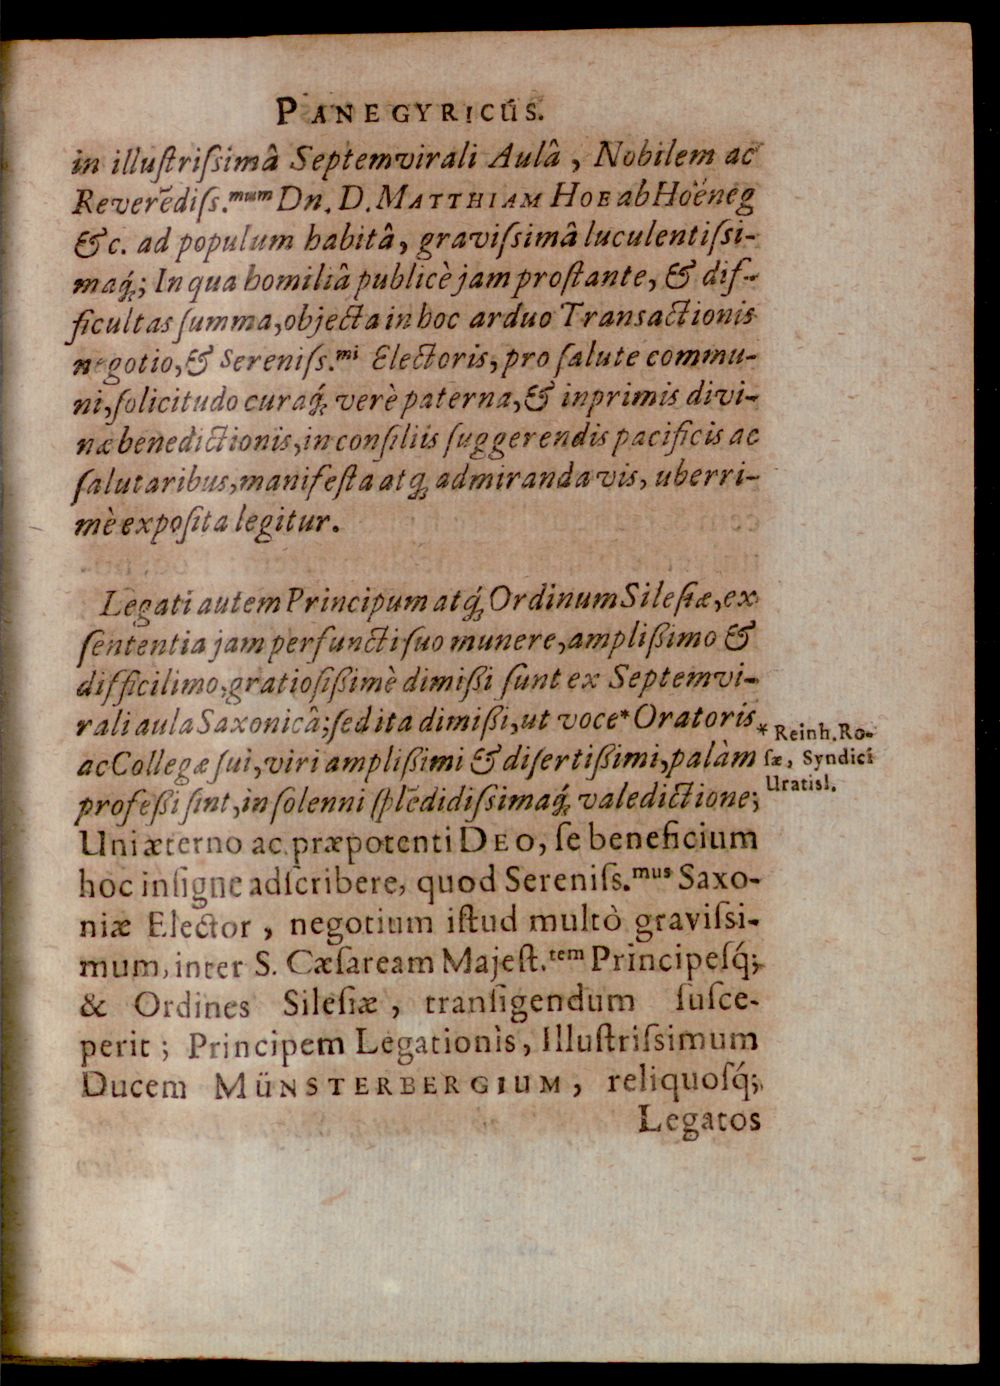 PANEGYRICÚS.
in illuſtriſsimâ Septemvirali Aulâ, Nobilem ac
Reverẽdiſs.mum Dn. D. MATTHIAM HOE ab Hoëneg
&c. ad populum habitâ, graviſsimâ luculentiſsi-
maq́; In qua homiliâ publicè jam proſtante, & dif-
ficultas ſumma, objecta in hoc arduo Transactionis
negotio, & Sereniſs.mi Electoris, pro ſalute commu-
ni, ſolicitudo curaq́; verè paterna, & inprimis divi-
næ benedictionis, in conſiliis ſuggerendis pacificis ac
ſalutaribus, manifeſta atq́; admiranda vis, uberri-
mè expoſita legitur.
Legati autem Principum atq́; Ordinum Sileſiæ, ex
ſententia jam perfuncti ſuo munere, ampliſſimo &
difficilimo, gratioſißimè dimißi ſunt ex Septemvi-
rali aula Saxonicâ; ſed ita dimißi, ut voce* Oratoris
ac Collegæ ſui, viri amplißimi & diſertißimi, palàm
profeßi ſint, in ſolenni ſplẽdidiſsimaq́; valedictione;
Uni æterno ac præpotenti DEO, ſe beneficium
hoc inſigne adſcribere, quod Sereniſs.mus Saxo-
niæ Elector, negotium iſtud multò graviſsi-
mum, inter S. Cæſaream Majeſt.tem Principeſq́;
& Ordines Sileſiæ, tranſigendum ſuſce-
perit; Principem Legationìs, Illuſtriſsimum
Ducem MÜNSTERBERGIUM, reliquoſq́;
Legatos
* Reinh. Ro-
ſæ, Syndici
Uratisl.